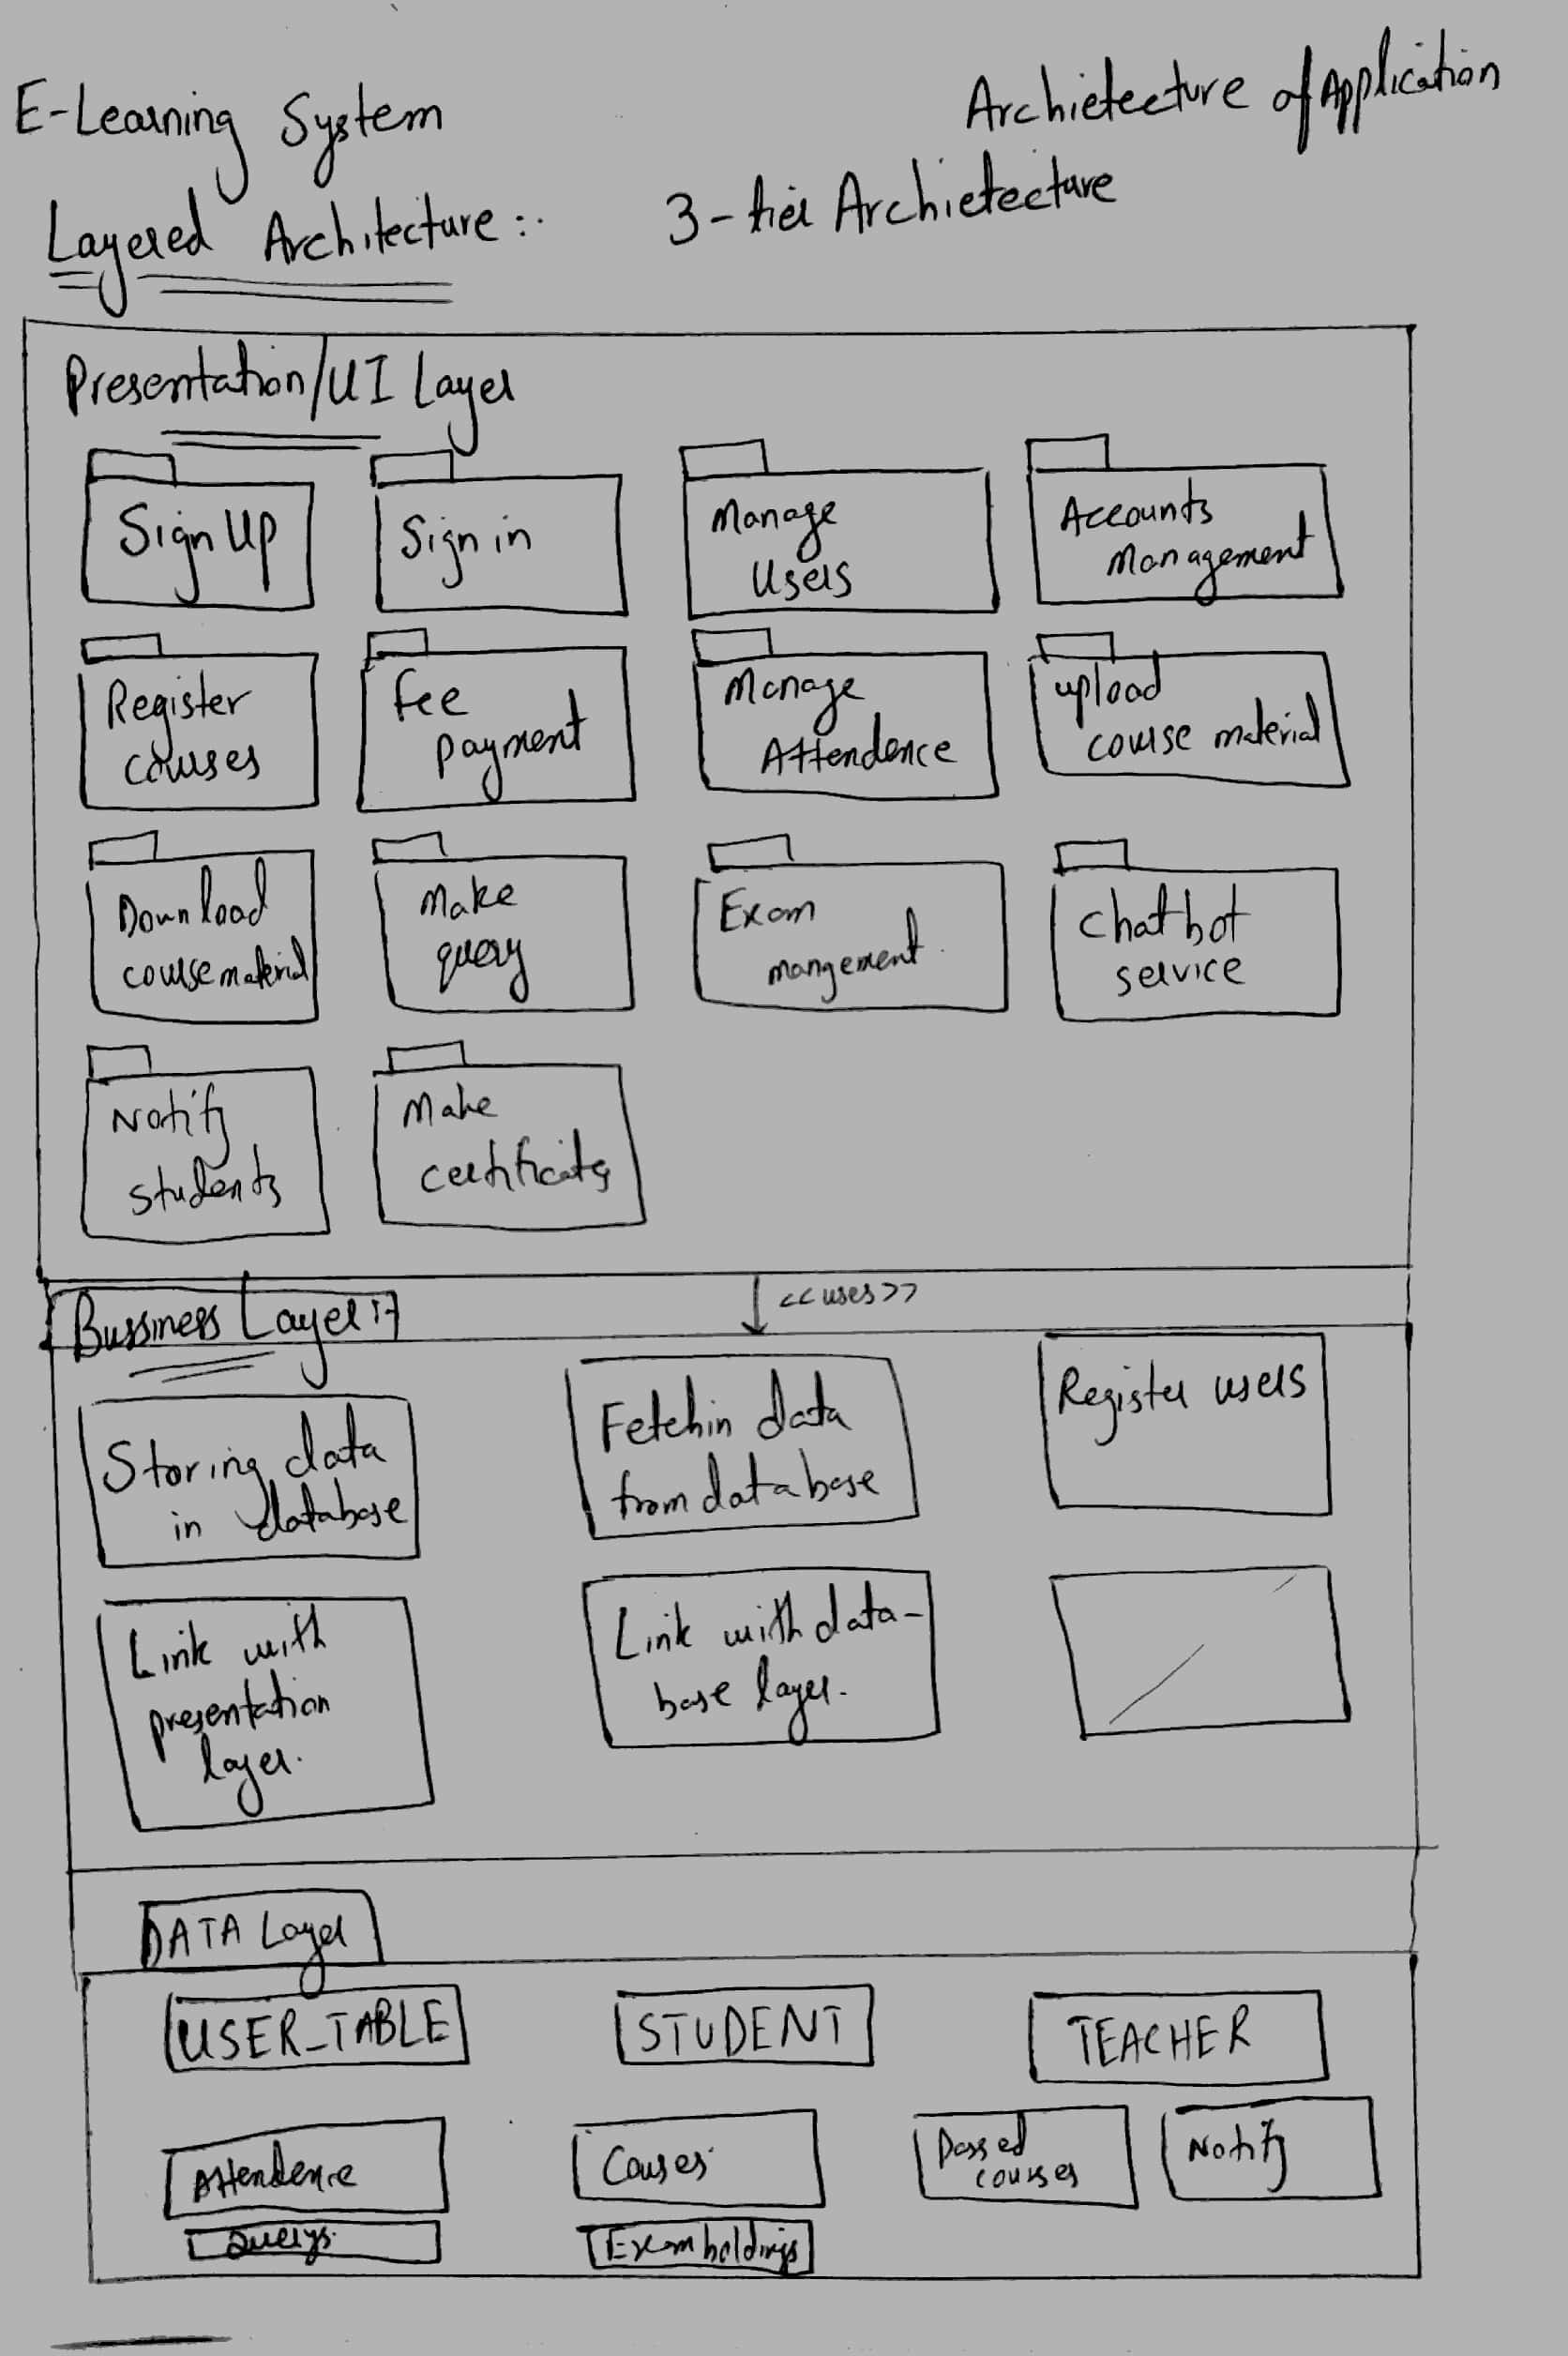 E-Learning System
Archietecture of Application
Layered Architecture::
3-tier Archietecture
Presentation/UI Layer
Sign Up
Sign in
Manage
Users
Accounts
Management
Register
courses
Fee
payment
Manage
Attendence
upload
course material
Download
course material
Make
query
Exam
mangement.
chatbot
service
Notify
students
Make
certificates
<<uses>>
Bussiness Layer:-
Storing data
in database
Fetchin data
from database
Register users
Link with
presentation
layer.
Link with data-
base layer.
DATA Layer
USER_TABLE
STUDENT
TEACHER
Attendence
Couses
Passed
courses
Notify
Querys
Exam holdings